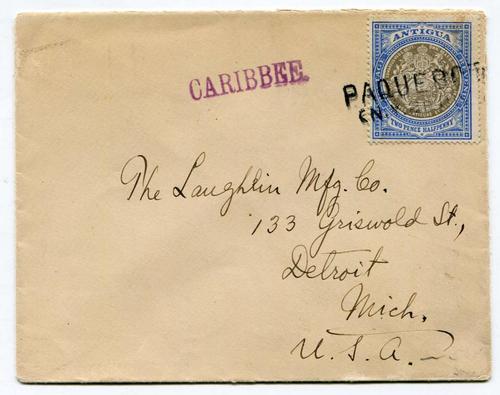 CARIBBEE.
ANTIGUA
PAQUEBOT
TWO PENCE HALFPENNY
The Laughlin Mfg. Co.
133 Griswold St.,
Detroit
Mich.
U.S.A.